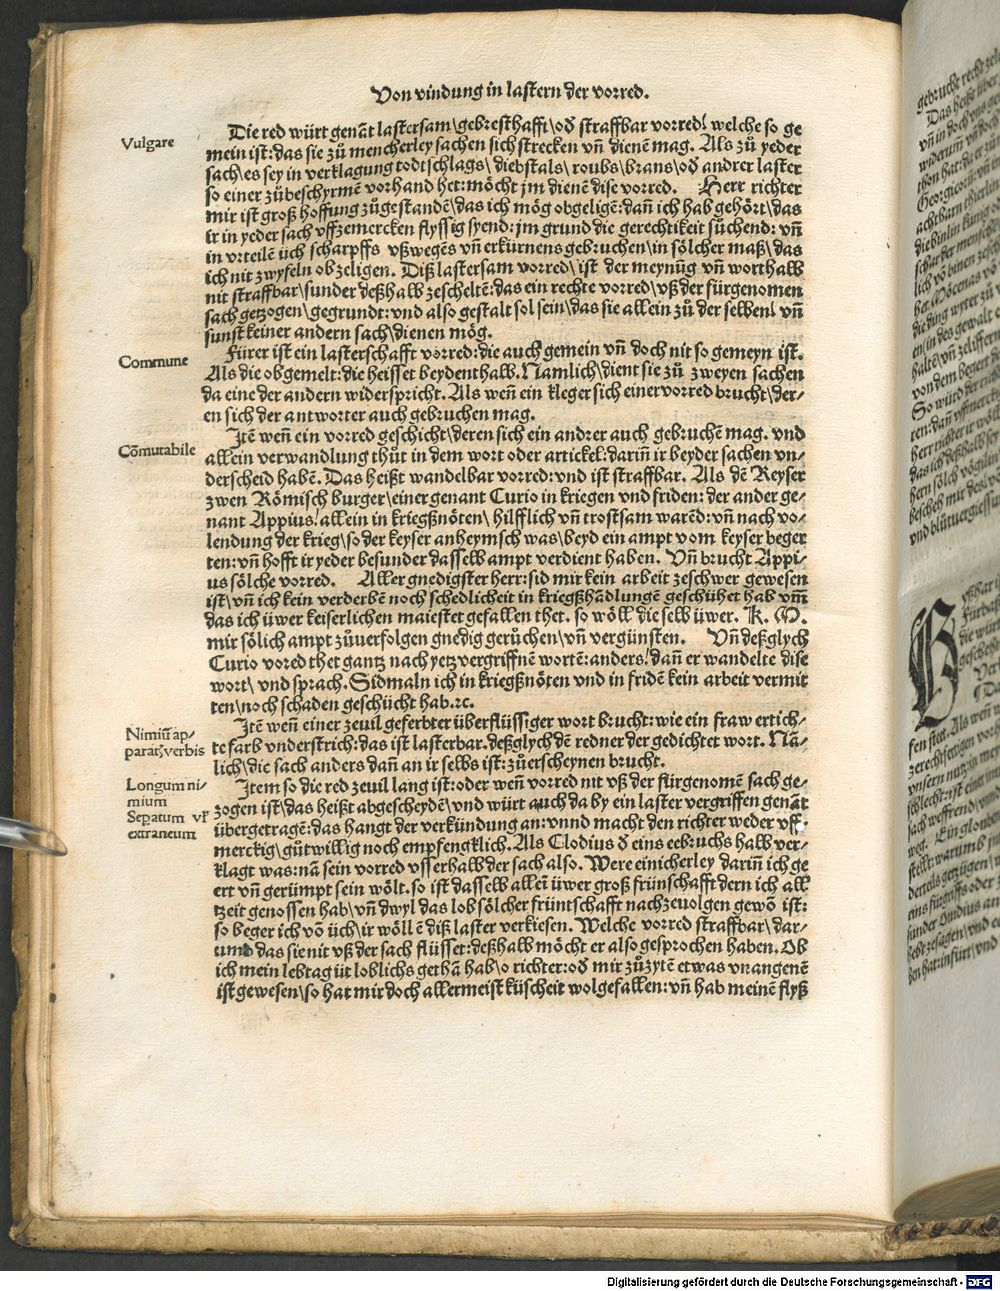 Von vindung in lastern der vorred.
Vulgare
Die red würt genāt lastersam\gebresthafft\oď straffbar vorred/ welche so ge
mein ist:das sie zů mencherley sachen sich strecken vn̄ dienē mag. Als zů yeder
sach\es sey in verklagung todtschlags\ diebstals\ roubs\brans\oď andrer laster
so einer zůbeschyrmē vorhand het:mőcht jm dienē dise vorred. Herr richter
mir ist groß hoffung zůgestandē\das ich mőg obgeligē:dan̄ ich hab gehőrt\das
ir in yeder sach vffzemercken flyssig syend:jm grund die gerechtikeit sůchend:vn̄
in vrteilē üch scharpffs vßwegēs vn̄ erkürnens gebruchen\in sőlcher maß\das
ich nit zwyfeln ob zeligen. Diß lastersam vorred\ist der meynūg vn̄ worthalb
nit straffbar\sunder deßhalb zescheltē:das ein rechte vorred\vß der fürgenomen
sach getzogen\gegrundt:vnd also gestalt sol sein\das sie allein zů der selben/ vn̄
sunst keiner andern sach\dienen mőg.
Commune
Fürer ist ein lasterschafft vorred:die auch gemein vn̄ doch nit so gemeyn ist.
Als die obgemelt:die heisset beydenthalb. Namlich\dient sie zů zweyen sachen
da eine der andern widerspricht. Als wen̄ ein kleger sich einer vorred brucht\der/
en sich der antworter auch gebruchen mag.
Cōmutabile
Jtē wen̄ ein vorred geschicht\deren sich ein andrer auch gebruchē mag. vnd
allein verwandlung thůt in dem wort oder artickel:darin̄ ir beyder sachen vn/
derscheid habē. Das heißt wandelbar vorred:vnd ist straffbar. Als dē Keyser
zwen Rőmisch burger\einer genant Curio in kriegen vnd friden: der ander ge/
nant Appius/ allein in kriegßnőten\ hilfflich vn̄ trostsam warēd:vn̄ nach vo/
lendung der krieg\so der keyser anheymsch was\beyd ein ampt vom keyser beger
ten:vn̄ hofft ir yeder besunder dasselb ampt verdient haben. Vn̄ brucht Appi/
us sőlche vorred. Aller gnedigster herr:sid mir kein arbeit zeschwer gewesen
ist\vn̄ ich kein verderbē noch schedlicheit in kriegßhādlungē geschühet hab vm̄
das ich üwer keiserlichen maiestet gefallen thet. so wőll die selb üwer. K. M.
mir sőlich ampt zůuerfolgen gnedig gerůchen\vn̄ vergünsten. Vn̄ deßglych
Curio vored thet gantz nach yetz vergriffnē wortē:anders/ dan̄ er wandelte dise
wort\ vnd sprach. Sidmaln ich in kriegßnőten vnd in fridē kein arbeit vermit
ten\noch schaden geschücht hab.ꝛc.
Nimiū ap/
paratꝫ verbis
Jtē wen̄ einer zeuil geferbter überflüssiger wort brucht:wie ein fraw ertich/
te farb vnderstrich:das ist lasterbar.deßglych dē redner der gedichtet wort. Nā/
lich\die sach anders dan̄ an ir selbs ist:zůerscheynen brucht.
Longum ni/
mium
Sepatum vƚ
extraneum
Jtem so die red zeuil lang ist:oder wen̄ vorred nit vß der fürgenomē sach ge/
zogen ist\das heißt abgescheydē\vnd würt auch da by ein laster vergriffen genāt
übergetragē:das hangt der verkündung an:vnnd macht den richter weder vff/
merckig\gůtwillig noch empfengklich. Als Clodius ď eins eebruchs halb ver/
klagt was:nā sein vorred vsserhalb der sach also. Were einicherley darin̄ ich ge
ert vn̄ gerümpt sein wőlt.so ist dasselb alleī üwer groß frünschafft dern ich all
tzeit genossen hab\vn̄ dwyl das lob sőlcher früntschafft nachzeuolgen gewō ist:
so beger ich vō üch\ir wőllē diß laster verkiesen. Welche vorred straffbar\dar/
umb das sie nit vß der sach flüsset:deßhalb mőcht er also gesprochen haben. Ob
ich mein lebtag üt loblichs gethā hab\o richter:oď mir zůzytē etwas vnangenē
ist gewesen\so hat mir doch allermeist küscheit wolgefallen:vn̄ hab meinē flyß
Digitalisierung gefördert durch die Deutsche Forschungsgemeinschaft - DFG